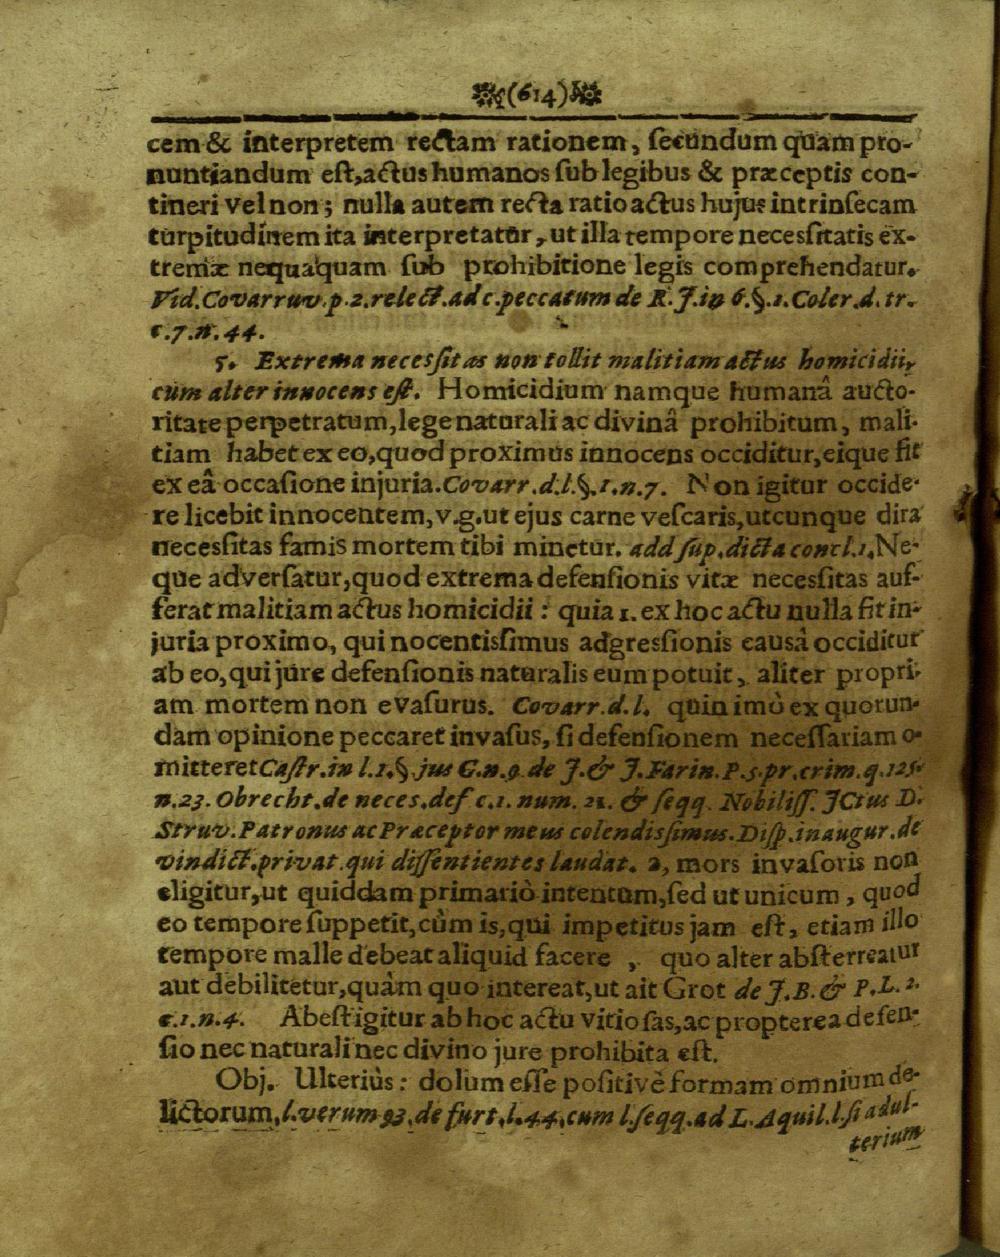 (614)
cem & interpretem rectam rationem, ſecundum quam pro-
nuntiandum eſt, actus humanos ſub legibus & præceptis con-
tineri vel non; nulla autem recta ratio actus hujus intrinſecam
turpitudinem ita interpretatur, ut illa tempore necesſitatis ex-
tremæ nequaquam ſub prohibitione legis comprehendatur.
Vid. Covarruv. p. 2. relect. ad c. peccatum de R. J. in 6. §. 1. Coler. d. tr.
c. 7. n. 44.
5. Extrema necesſitas non tollit malitiam actus homicidii,
cùm alter innocens eſt. Homicidium namque humanâ aucto-
ritate perpetratum, lege naturali ac divinâ prohibitum, mali-
tiam habet ex eo, quod proximus innocens occiditur, eique fit
ex eâ occaſione injuria. Covarr. d. l. §. 1. n. 7. Non igitur occide-
re licebit innocentem, v. g. ut ejus carne veſcaris, utcunque dira
necesſitas famis mortem tibi minetur. add ſup. dicta concl. 1. Ne-
que adverſatur, quod extrema defenſionis vitæ necesſitas auf-
ferat malitiam actus homicidii: quia 1. ex hoc actu nulla fit in-
juria proximo, qui nocentisſimus adgresſionis causâ occiditur
ab eo, qui jure defenſionis naturalis eum potuit, aliter propri-
am mortem non evaſurus. Covarr. d. l. quin imò ex quorun-
dam opinione peccaret invaſus, ſi defenſionem neceſſariam o-
mitteret Caſtr. in l. 1. §. jus G. n. 9. de J. & J. Farin. P. 5. pr. crim. q. 125.
n. 23. Obrecht. de neces. def c. 1. num. 21. & ſeqq. Nobiliſſ. JCtus D.
Struv. Patronus ac Præceptor meus colendisſimus. Diſp. inaugur. de
vindict. privat. qui diſſentientes laudat. 2, mors invaſoris non
eligitur, ut quiddam primariò intentum, ſed ut unicum, quod
eo tempore ſuppetit, cùm is, qui impetitus jam eſt, etiam illo
tempore malle debeat aliquid facere, quo alter abſterreatur
aut debilitetur, quàm quo intereat, ut ait Grot de J. B. & P. L. 2.
c. 1. n. 4. Abeſt igitur ab hoc actu vitioſas, ac propterea defen-
ſio nec naturali nec divino jure prohibita eſt.
Obj. Ulteriùs: dolum eſſe poſitivè formam omnium de-
lictorum, l. verum 93. de furt. l. 44. cum l. ſeqq. ad L. Aquil. l. ſi adul-
terium